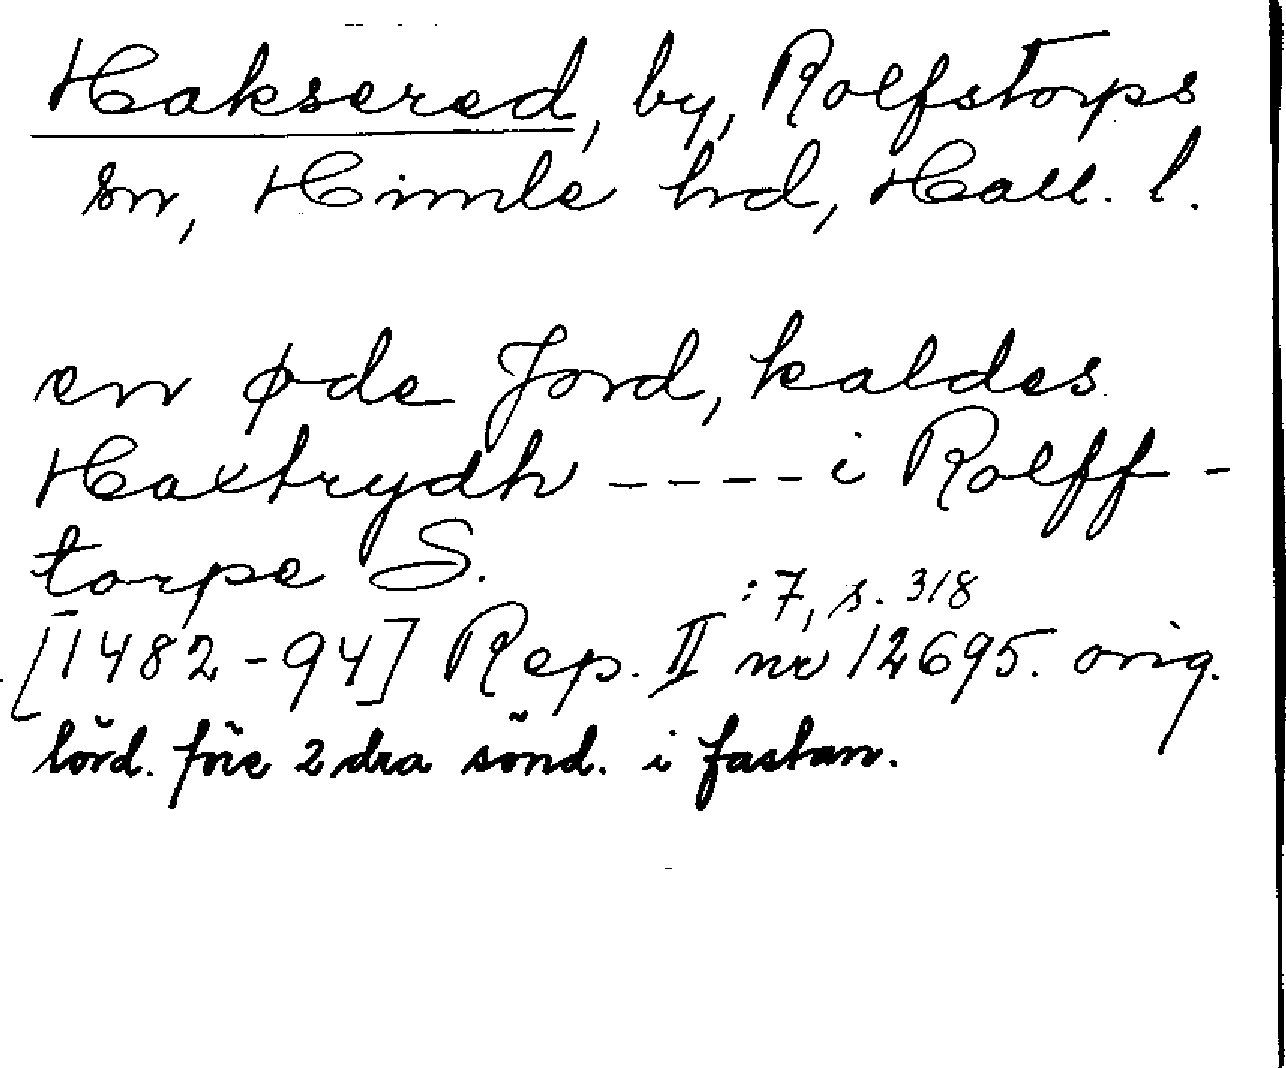 Haksered, by, Rolfstorps
sn, Himle hd, Hall. l.
en øde Jord, kaldes
Haxtrydh ---- i Rolff-
torpe S.
:7, s. 318
[1482-94] Rep. II nr 12695. orig.
lörd. före 2dra sönd. i fastan.